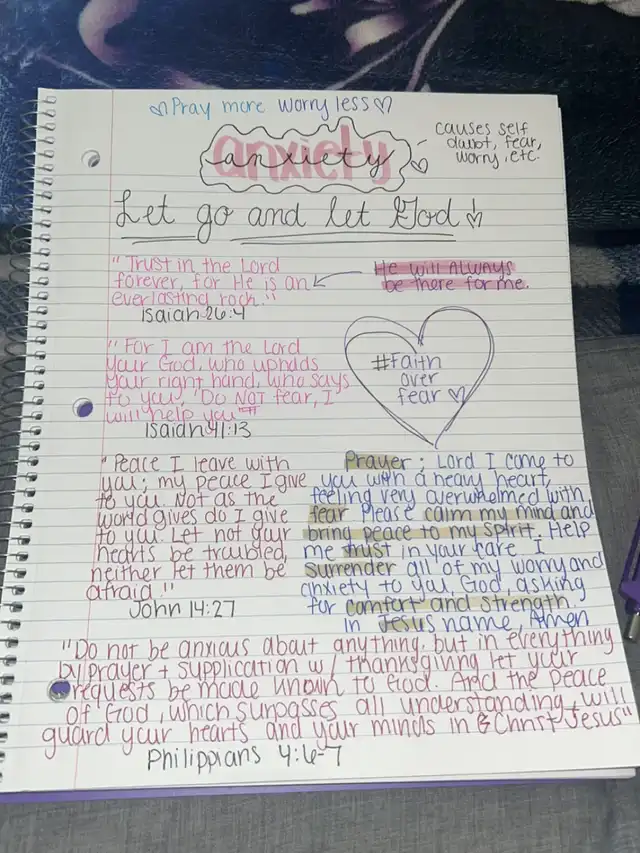 ♡Pray more worry less♡
anxiety
anxiety
causes self
doubt, fear,
worry, etc.
Let go and let God
"Trust in the Lord
forever, for He is an
everlasting rock."
Isaiah 26:4
He will ALWAYS
be there for me.
"For I am the Lord
your God, who upholds
your right hand, who says
to you, 'Do NOT fear, I
will help you'"
Isaiah 41:13
#Faith
over
fear ♡
"Peace I leave with
you; my peace I give
to you. Not as the
world gives do I give
to you. Let not your
hearts be troubled,
neither let them be
afraid."
John 14:27
Prayer: Lord I come to
you with a heavy heart,
feeling very overwhelmed with
fear. Please calm my mind and
bring peace to my spirit. Help
me trust in your care. I
surrender all of my worry and
anxiety to you, God, asking
for comfort and strength.
In Jesus name, Amen
"Do not be anxious about anything, but in everything
by prayer + supplication w/ thanksgiving let your
requests be made known to God. And the peace
of God, which surpasses all understanding, will
guard your hearts and your minds in Christ Jesus"
Philippians 4:6-7